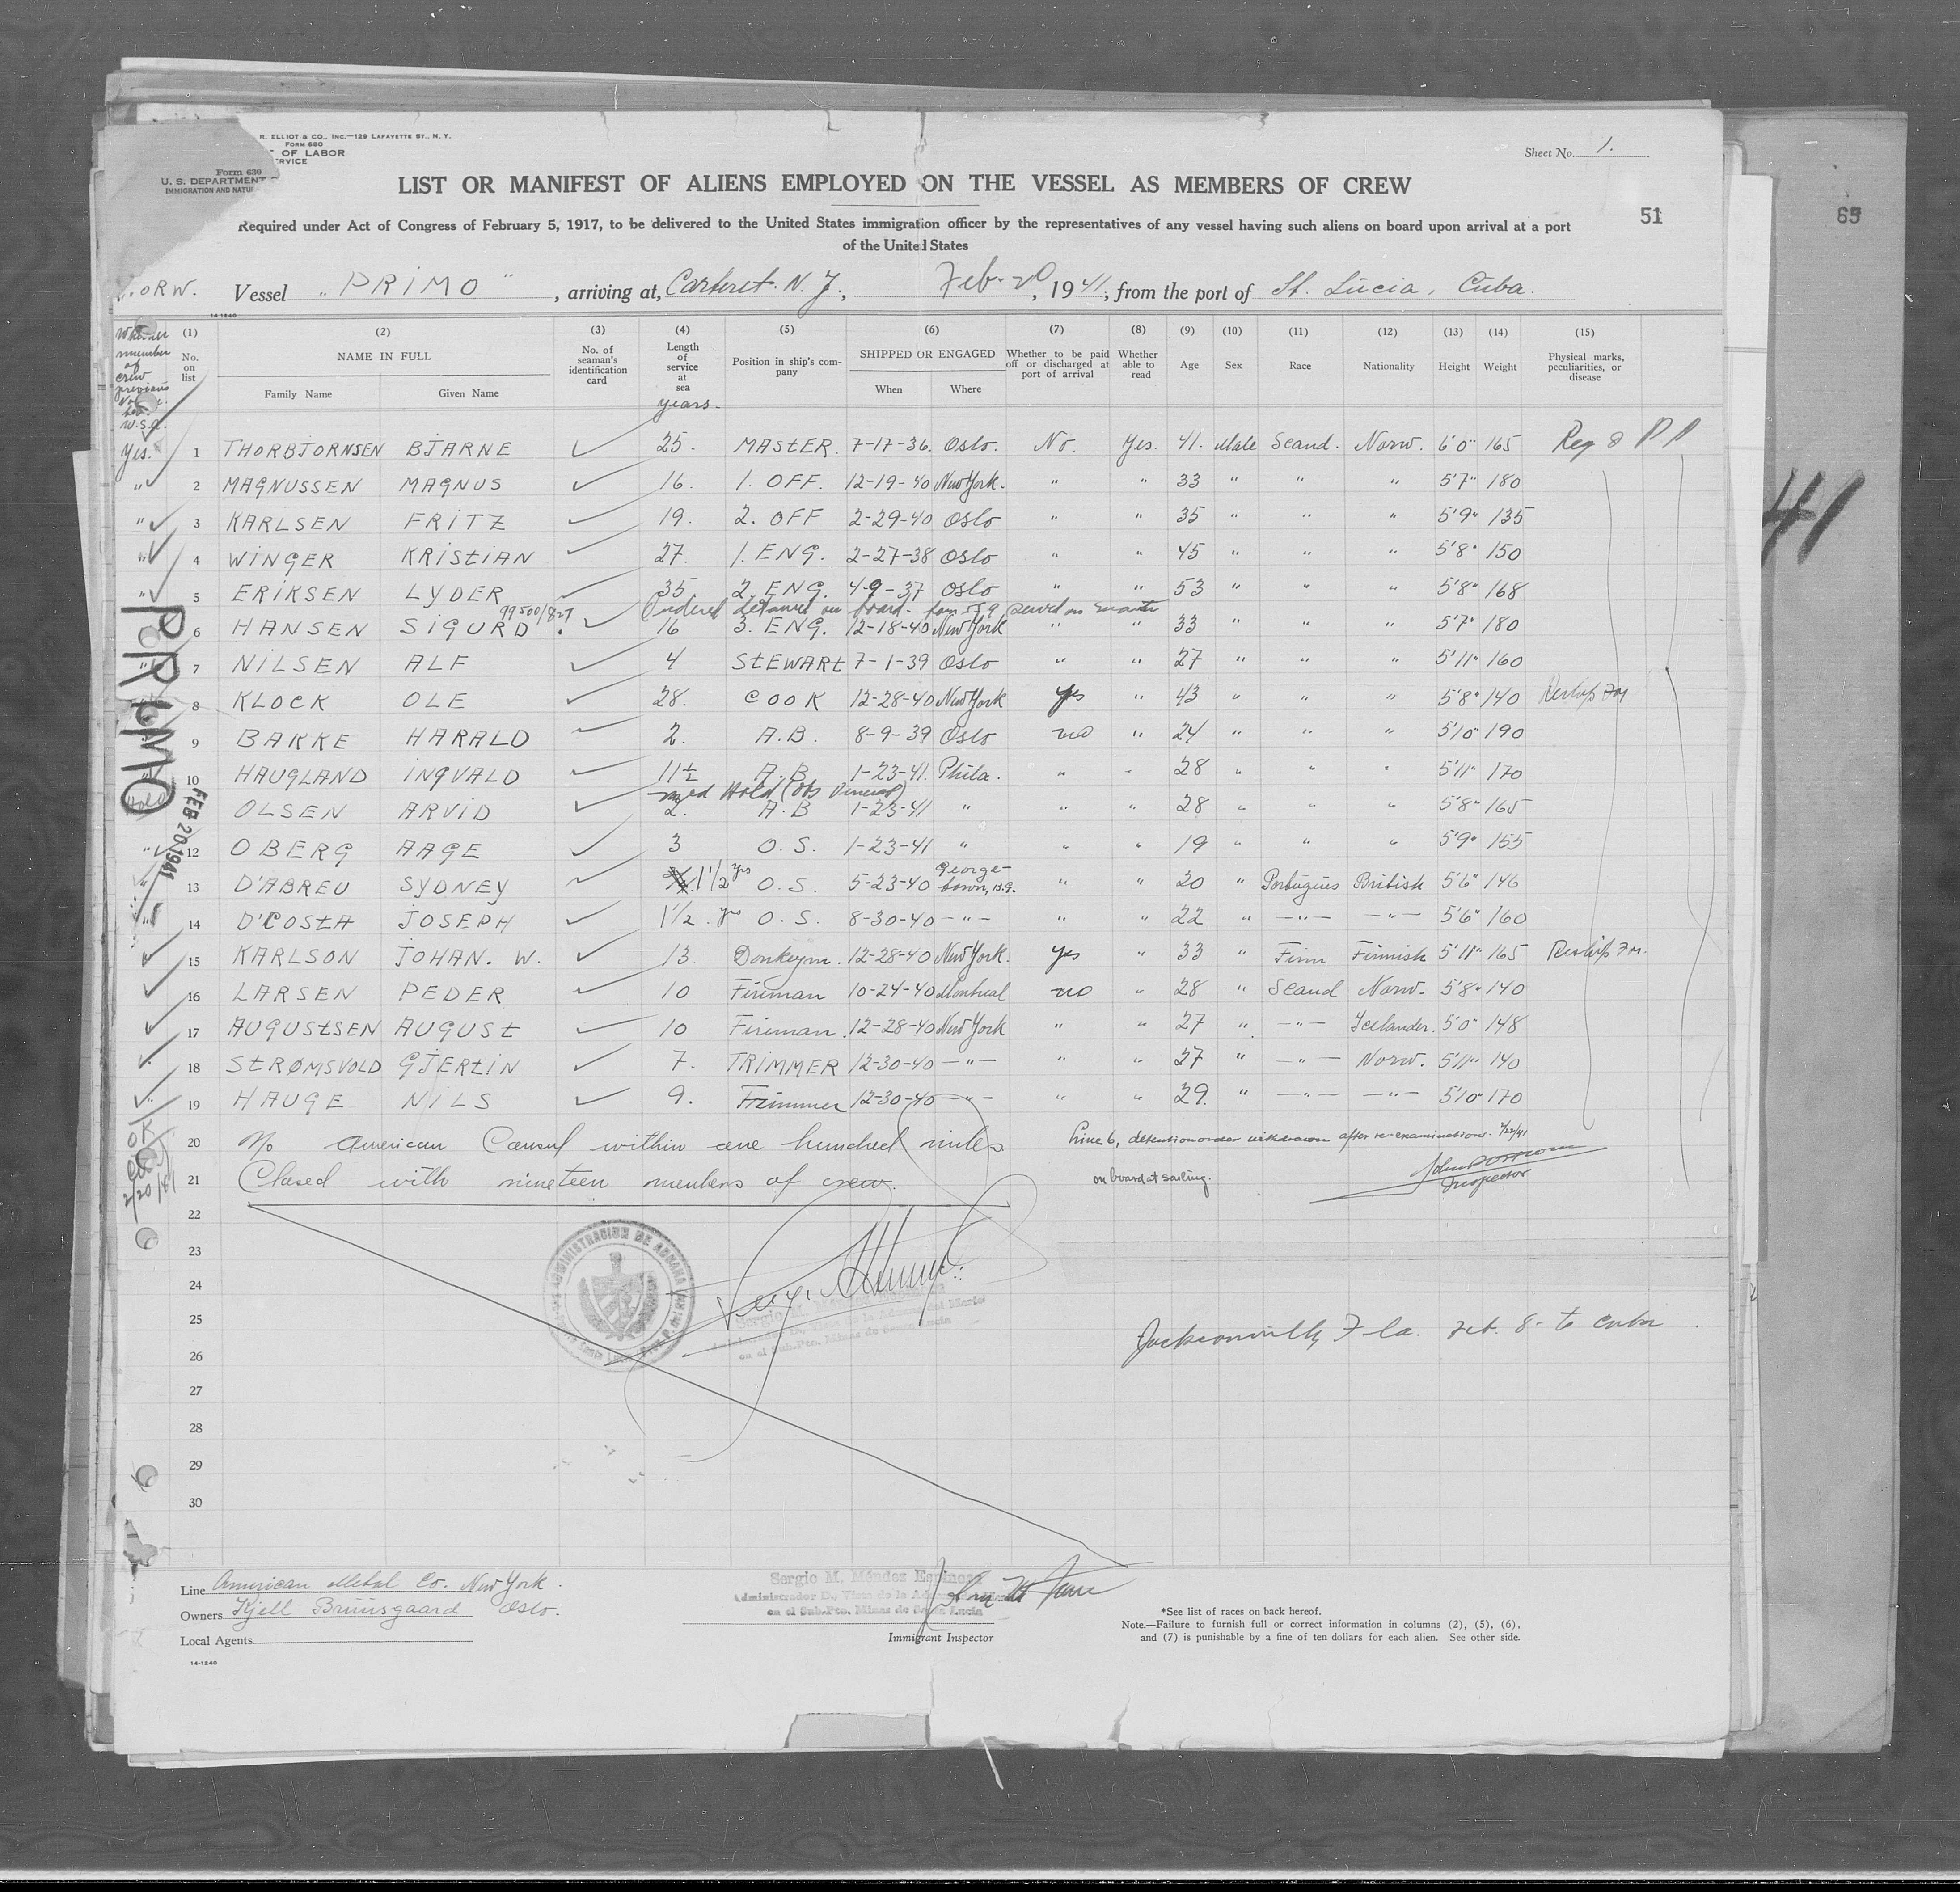 R. ELLIOT & CO., INC.—129 LAFAYETTE ST., N. Y.
FORM 680
OF LABOR
RVICE
Form 630
U. S. DEPARTMENT
IMMIGRATION AND NATU
Sheet No. 1.
LIST OR MANIFEST OF ALIENS EMPLOYED ON THE VESSEL AS MEMBERS OF CREW
Required under Act of Congress of February 5, 1917, to be delivered to the United States immigration officer by the representatives of any vessel having such aliens on board upon arrival at a port
of the United States
51
65
41
NORW. Vessel "PRIMO", arriving at, Carteret. N. J., Feb. 20, 1941, from the port of St. Lucia, Cuba.
14-1240
Whether member of crew previous U.S.A.
(1) No. on list
(2) NAME IN FULL Family Name Given Name
(3) No. of seaman's identification card
(4) Length of service at sea years.
(5) Position in ship's company
(6) SHIPPED OR ENGAGED When Where
(7) Whether to be paid off or discharged at port of arrival
(8) Whether able to read
(9) Age
(10) Sex
(11) Race
(12) Nationality
(13) Height
(14) Weight
(15) Physical marks, peculiarities, or disease
Yes. 1 THORBJORNSEN BJARNE 25. MASTER. 7-17-36. Oslo. No. Yes. 41. Male Scand. Norw. 6'0" 165 Reg 8 P P
" 2 MAGNUSSEN MAGNUS 16. 1. OFF. 12-19-40 New York. " " 33 " " " 5'7" 180
" 3 KARLSEN FRITZ 19. 2. OFF 2-29-40 Oslo " " 35 " " " 5'9" 135
" 4 WINGER KRISTIAN 27. 1. ENG. 2-27-38 Oslo " " 45 " " " 5'8" 150
" 5 ERIKSEN LYDER 35 2. ENG. 4-9-37 Oslo " " 53 " " " 5'8" 168
99500/827 Ordered detained on board. form 259 served on master
6 HANSEN SIGURD 16 3. ENG. 12-18-40 New York " " 33 " " " 5'7" 180
" 7 NILSEN ALF 4 STEWART 7-1-39 Oslo " " 27 " " " 5'11" 160
8 KLOCK OLE 28. COOK 12-28-40 New York Yes " 43 " " " 5'8" 140 Reship For
9 BAKKE HARALD 2. A.B. 8-9-39 Oslo no " 24 " " " 5'10" 190
10 HAUGLAND INGVALD 11½ A.B. 1-23-41. Phila. " " 28 " " " 5'11" 170
med Hold (Obs Venereal)
OLSEN ARVID 2. A.B 1-23-41 " " " 28 " " " 5'8" 165
" 12 OBERG AAGE 3 O.S. 1-23-41 " " " 19 " " " 5'9" 155
" 13 D'ABREU SYDNEY 1 1/2 yrs O.S. 5-23-40 Georgetown, B.G. " " 20 " Portugues British 5'6" 146
" 14 D'COSTA JOSEPH 1 1/2 . yrs O.S. 8-30-40 —"— " " 22 " —"— —"— 5'6" 160
15 KARLSON JOHAN. W. 13. Donkeym. 12-28-40 New York. Yes " 33 " Finn Finnish 5'11" 165 Reship For.
16 LARSEN PEDER 10 Fireman 10-24-40 Montreal no " 28 " Scand Norw. 5'8" 140
17 AUGUSTSEN AUGUST 10 Fireman. 12-28-40 New York " " 27 " —"— Icelander. 5'0" 148
18 STRØMSVOLD GJERTIN 7. TRIMMER 12-30-40 —"— " " 27 " —"— Norw. 5'11" 140
19 HAUGE NILS 9. Trimmer 12-30-40 —"— " " 29. " —"— —"— 5'10" 170
PRIMO
FEB 20 1941
OK
2/20/41
20 No American Consul within one hundred miles
Line 6, detention order withdrawn after re-examination. 2/22/41
21 Closed with nineteen members of crew.
on board at sailing.
Inspector
22
23
24
25
26
27
28
29
30
ADMINISTRACION DE ADUANA
Sergio M. Méndez Espinosa
Administrador D., Vista de la Aduana del Mariel
en el Sub.Pto. Minas de Santa Lucia
Jacksonville, Fla. Feb. 8 - to Cuba.
Line American Metal Co. New York.
Owners Kjell Bruusgaard Oslo.
Local Agents
14-1240
Sergio M. Méndez Espinosa
Administrador D., Vista de la Aduana
en el Sub.Pto. Minas de Santa Lucia
Immigrant Inspector
*See list of races on back hereof.
Note.—Failure to furnish full or correct information in columns (2), (5), (6),
and (7) is punishable by a fine of ten dollars for each alien. See other side.